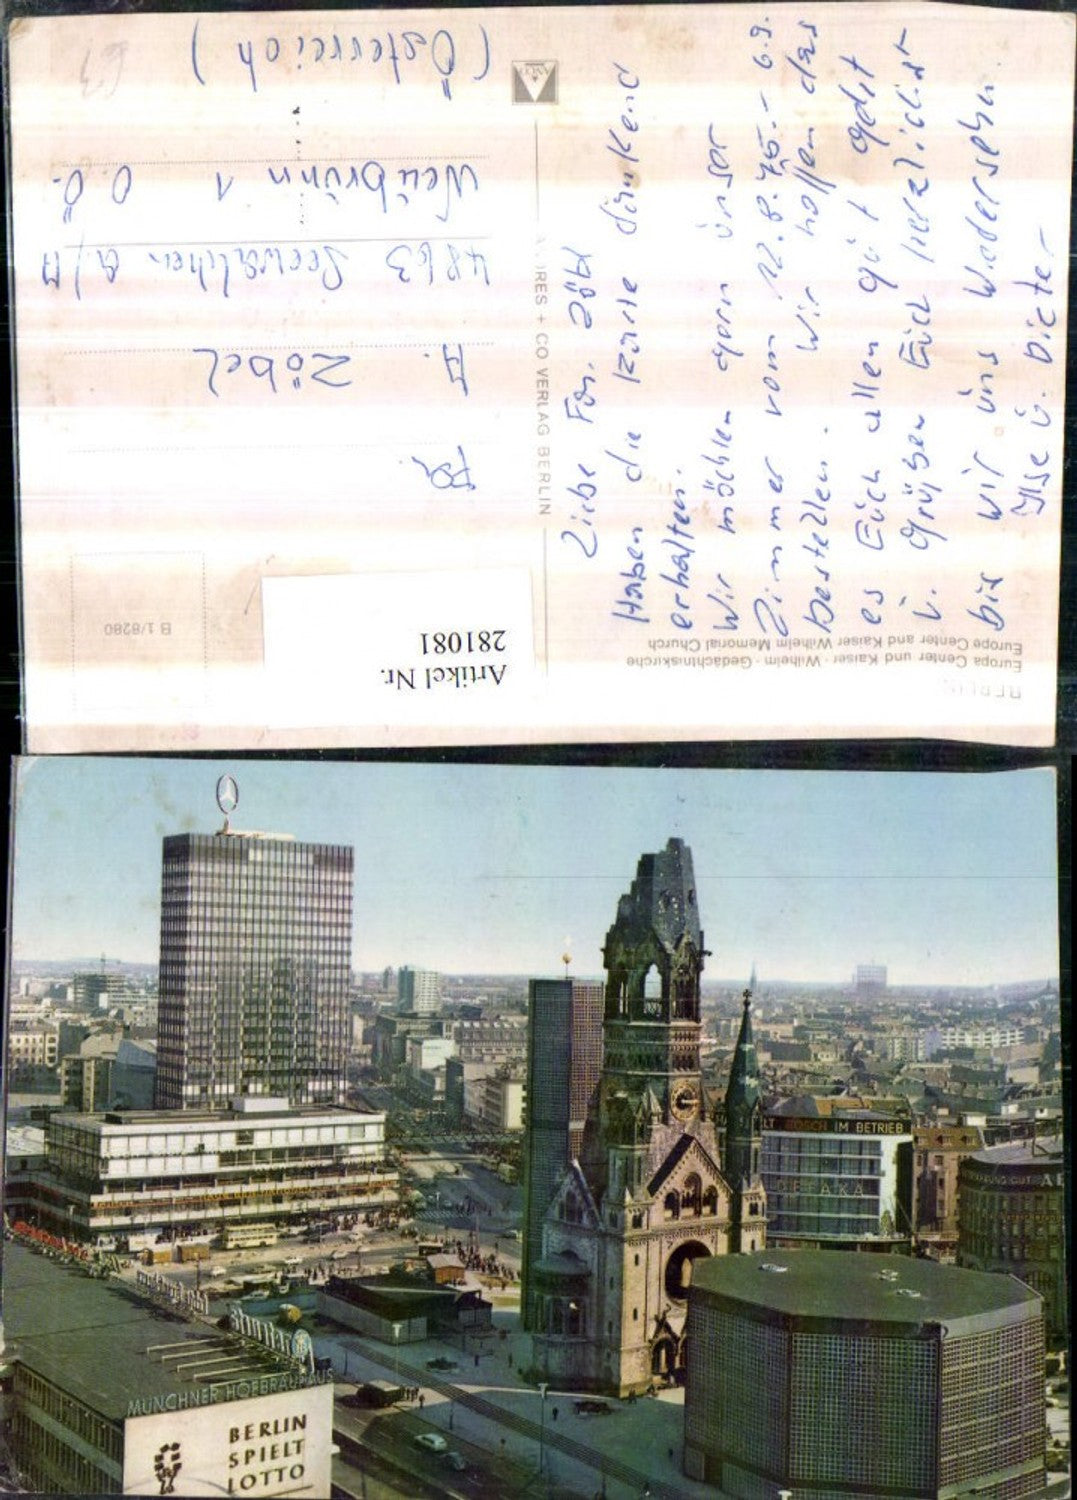 BERLIN
Europa Center und Kaiser - Wilhelm - Gedächtniskirche
Europe Center and Kaiser Wilhelm Memorial Church
Artikel Nr.
281081
B 1/8280
Liebe Fam. Zöbl
Haben die Karte dankend
erhalten.
Wir möchten gern unser
Zimmer vom 12.8.75 - 6.9.
bestellen. Wir hoffen das
es Euch allen gut geht
u. grüßen Euch herzlichst
bis wir uns Wiedersehn.
Ilse u. Dieter
RES + CO VERLAG BERLIN
Fa.
A. Zöbel
4863 Seewalchen a/A
Neubrunn 1 O.Ö.
(Österreich)
63
LT BOSCH IM BETRIEB
DEFAKA
MÜNCHNER HOFBRÄUHAUS
BERLIN
SPIELT
LOTTO